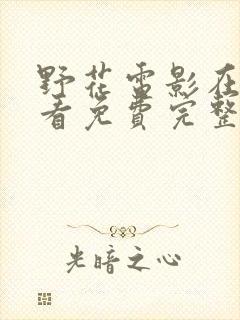 野花雷影在
看免费完整
光暗之心